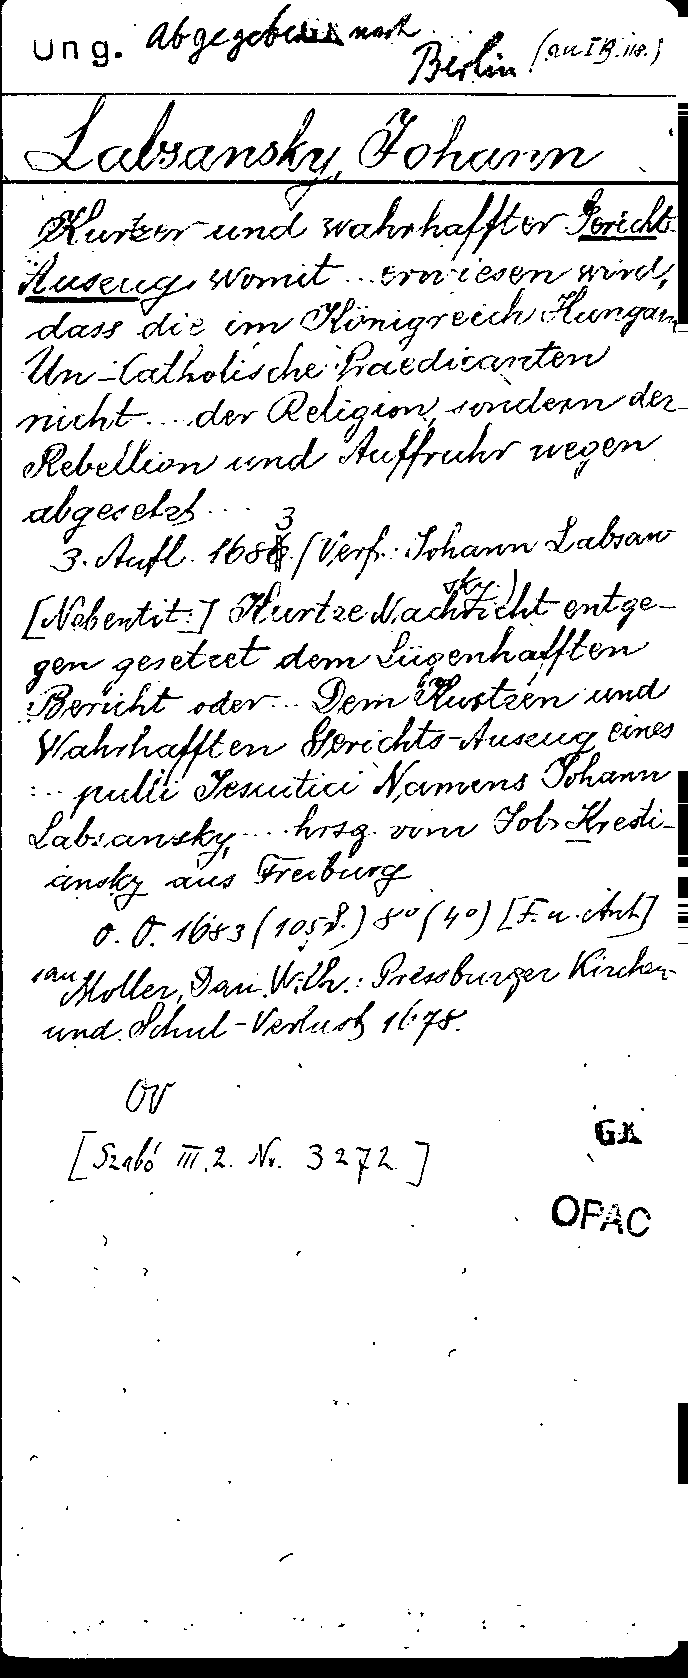 ung. abgegeben nach
Berlin (an I B
Labsansky, Johann
Kurtzer und wahrhaffter Gerichts
Auszug, womit ... erwiesen wird,
dass die im Königreich Hungarn
Un-Catholische Praedicanten
nicht ... der Religion, sondern der
Rebellion und Auffruhr wegen
abgesetzt ...
3
3. Aufl. 168 (Verf.: Johann Labsan
sky.)
[Nebentit:] Kurtze Nachricht entge-
gen gesetzet dem Lügenhafften
Bericht oder ... Dem Kurtzen und
Wahrhafften Gerichts-Auszug eines
... pulli Jesuitici Namens Johann
Labsansky, ... hrsg. vom Job Kresti-
ansky aus Freiburg
o. O. 1683 (105 S.) 8° (4°) [F. u. Anh]
an
Moller, Dan. Wilh.: Pressburger Kirchen-
und Schul-Verlust 1678.
OV
[Szabó III. 2. Nr. 3272]
GK
OPAC